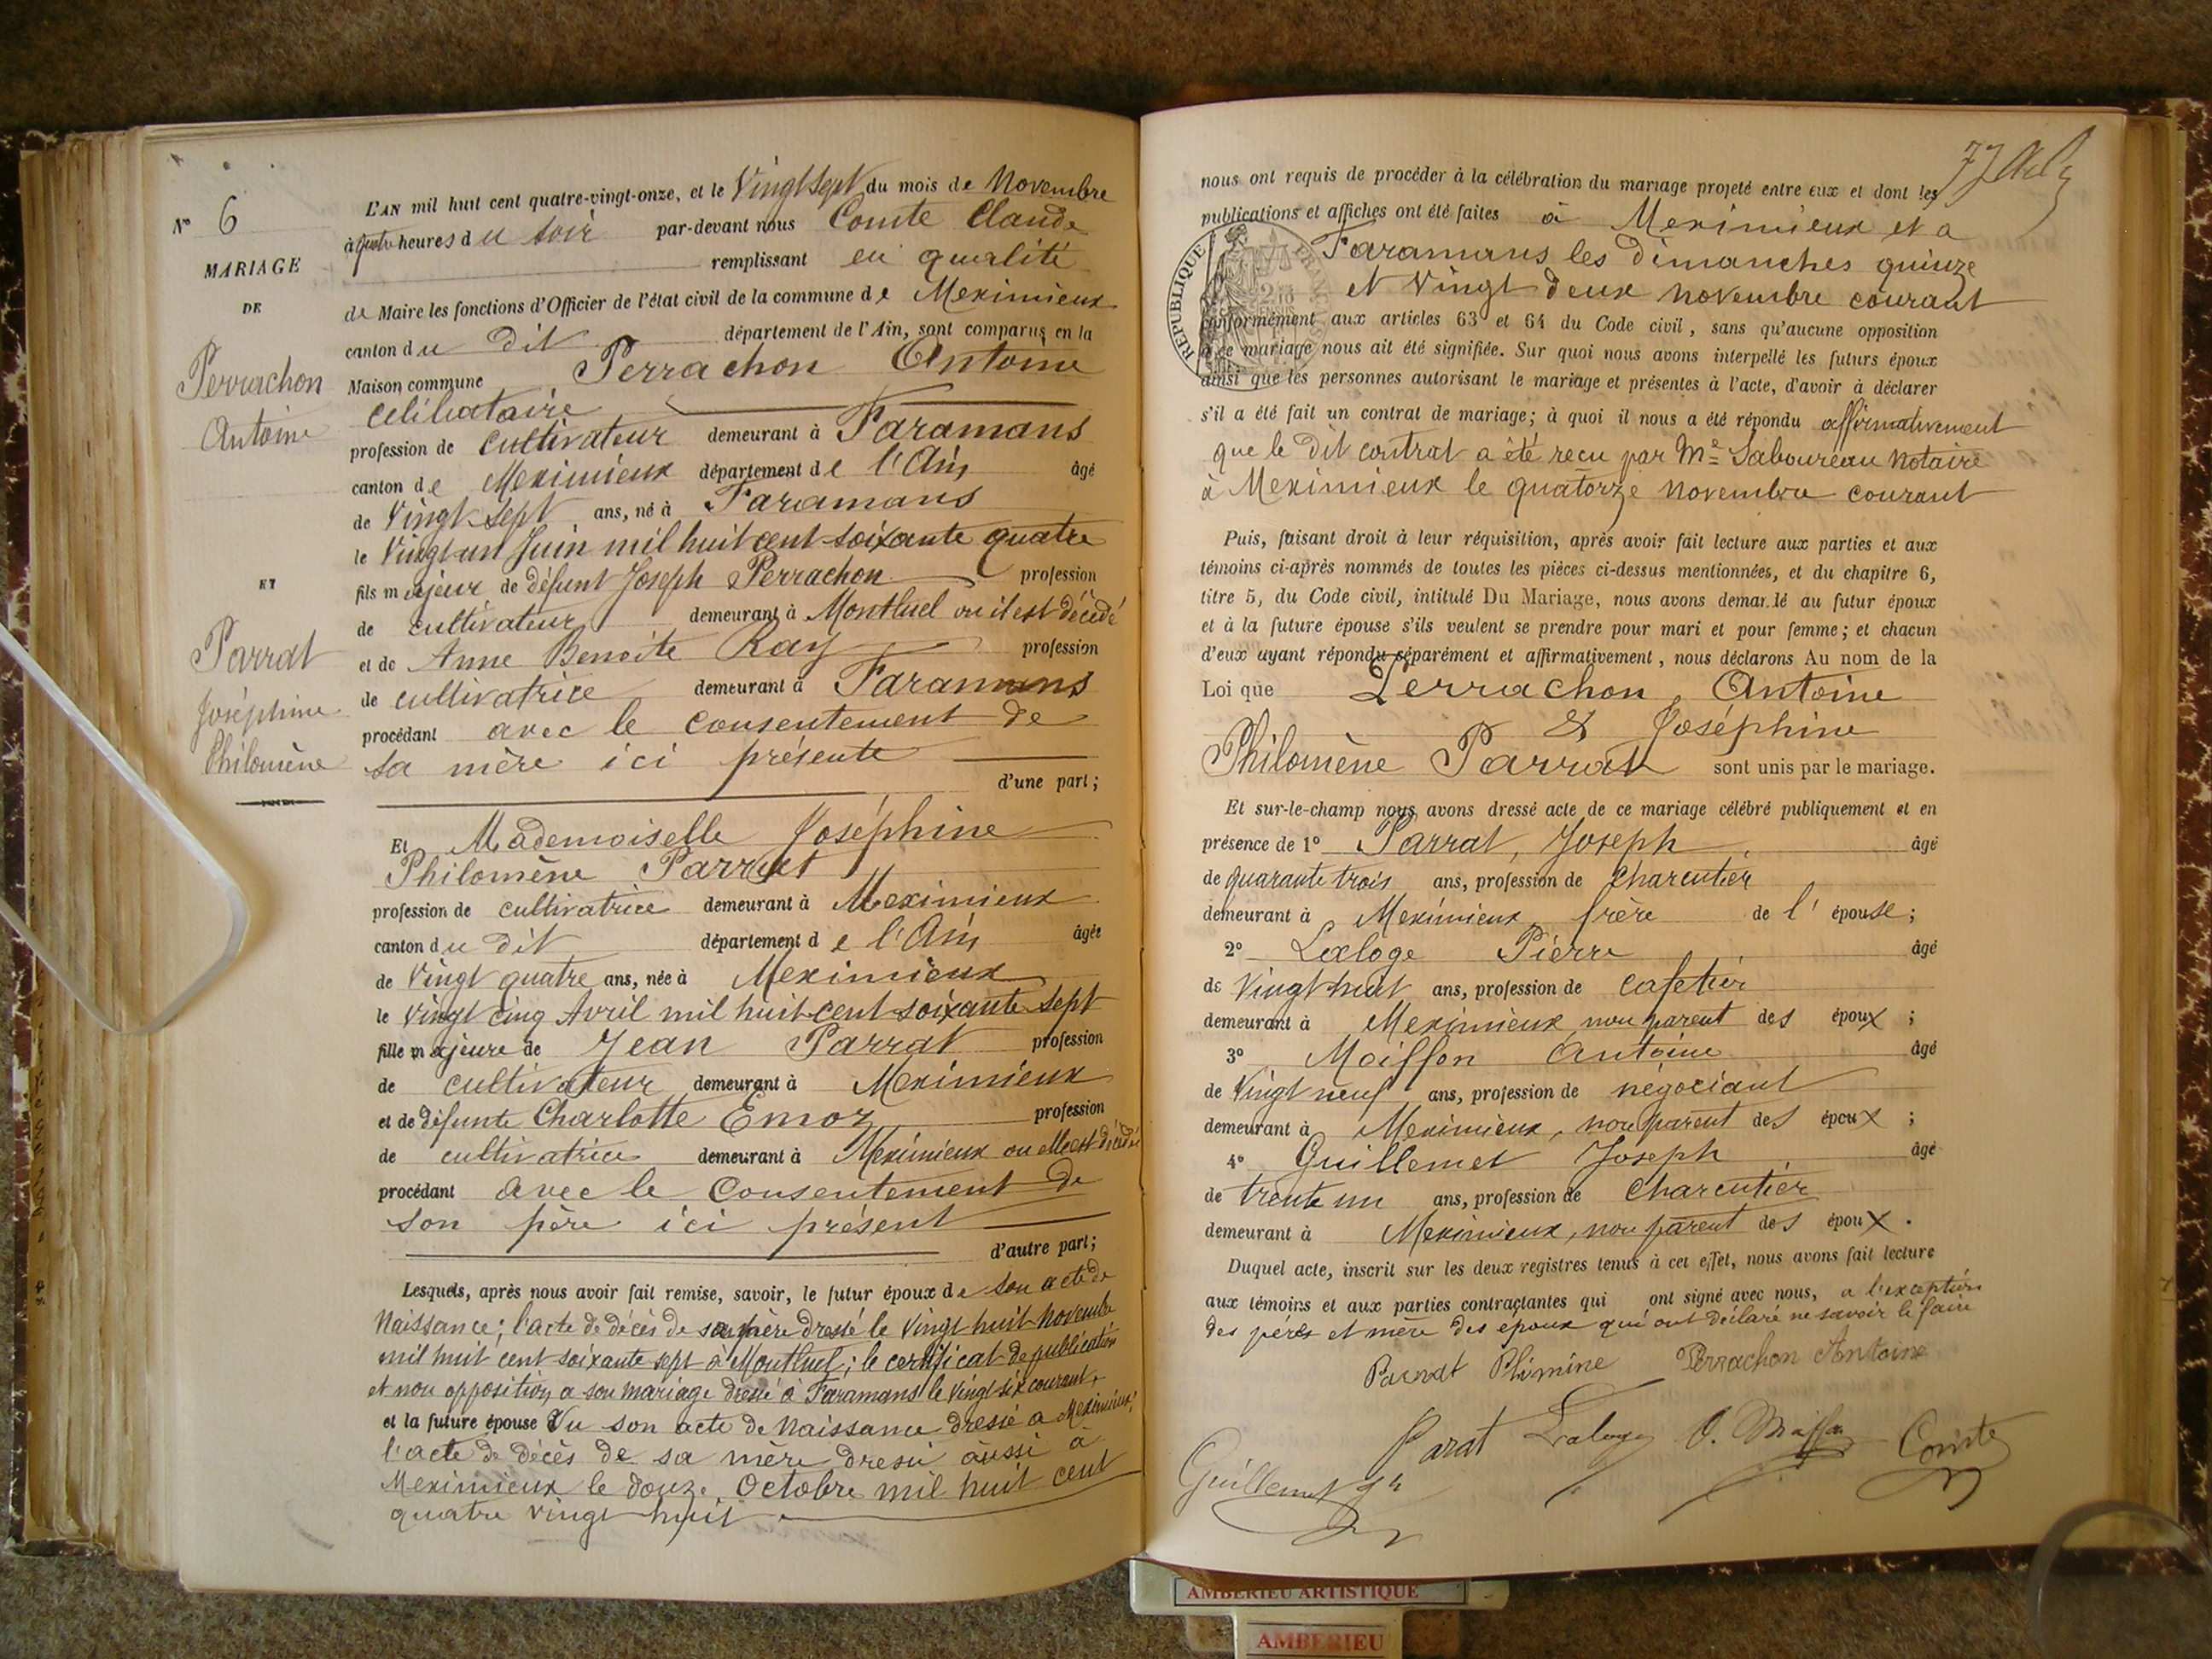 N° 6
MARIAGE
DE
Perrachon
Antoine
ET
Parrat
Joséphine
Philomène
L'AN mil huit cent quatre-vingt-onze, et le Vingt Sept du mois de Novembre
à quatre heures du soir par-devant nous Comte Claude
remplissant en qualité
de Maire les fonctions d'Officier de l'état civil de la commune de Meximieux
canton du dit département de l'Ain, sont comparus en la
Maison commune Perrachon Antoine
célibataire
profession de cultivateur demeurant à Faramans
canton de Meximieux département de l'Ain âgé
de Vingt Sept ans, né à Faramans
le Vingt un Juin mil huit cent soixante quatre
fils majeur de défunt Joseph Perrachon profession
de cultivateur demeurant à Montluel ou il est décédé
et de Anne Benoite Ray profession
de cultivatrice demeurant à Faramans
procédant avec le consentement de
sa mère ici présente
d'une part;
Et Mademoiselle Joséphine
Philomène Parrat
profession de cultivatrice demeurant à Meximieux
canton du dit département de l'Ain âgée
de Vingt quatre ans, née à Meximieux
le Vingt cinq Avril mil huit cent soixante sept
fille majeure de Jean Parrat profession
de cultivateur demeurant à Meximieux
et de défunte Charlotte Emoz profession
de cultivatrice demeurant à Meximieux ou elle est décédé
procédant avec le Consentement de
son père ici présent
d'autre part;
Lesquels, après nous avoir fait remise, savoir, le futur époux de son acte de
Naissance; l'acte de décès de son père dressé le Vingt huit novembre
mil huit cent soixante sept à Montluel; le certificat de publication
et non opposition a son mariage dressé à Faramans le Vingt six courant,
et la future épouse Vu son acte de Naissance dressé a Meximieux;
l'acte de décès de sa mère dressé aussi à
Meximieux le douze Octobre mil huit cent
quatre vingt huit
77
nous ont requis de procéder à la célébration du mariage projeté entre eux et dont les
publications et affiches ont été faites à Meximieux et a
Faramans les dimanches quinze
et Vingt deux novembre courant
conformément aux articles 63 et 64 du Code civil, sans qu'aucune opposition
à ce mariage nous ait été signifiée. Sur quoi nous avons interpellé les futurs époux
ainsi que les personnes autorisant le mariage et présentes à l'acte, d'avoir à déclarer
s'il a été fait un contrat de mariage; à quoi il nous a été répondu affirmativement
que le dit contrat a été reçu par Me Saboureau Notaire
à Meximieux le quatorze novembre courant
RÉPUBLIQUE
Puis, faisant droit à leur réquisition, après avoir fait lecture aux parties et aux
témoins ci-après nommés de toutes les pièces ci-dessus mentionnées, et du chapitre 6,
titre 5, du Code civil, intitulé Du Mariage, nous avons demandé au futur époux
et à la future épouse s'ils veulent se prendre pour mari et pour femme; et chacun
d'eux ayant répondu séparément et affirmativement, nous déclarons Au nom de la
Loi que Perrachon Antoine
& Joséphine
Philomène Parrat sont unis par le mariage.
Et sur-le-champ nous avons dressé acte de ce mariage célébré publiquement et en
présence de 1° Parrat, Joseph âgé
de quarante trois ans, profession de Charcutier
demeurant à Meximieux, frère de l'épouse;
2° Laloge Pierre âgé
de Vingt huit ans, profession de cafetier
demeurant à Meximieux non parent des époux;
3° Moiffon Antoine âgé
de Vingt neuf ans, profession de négociant
demeurant à Meximieux, non parent des époux;
4° Guillemet Joseph âgé
de trente un ans, profession de Charcutier
demeurant à Meximieux, non parent des époux.
Duquel acte, inscrit sur les deux registres tenus à cet effet, nous avons fait lecture
aux témoins et aux parties contractantes qui ont signé avec nous, a l'exception
des pères et mère des époux qui ont déclaré ne savoir le faire
Parrat Perrachon Antoine
Parat Laloge Comte
Guillemet
AMBERIEU ARTISTIQUE
AMBERIEU